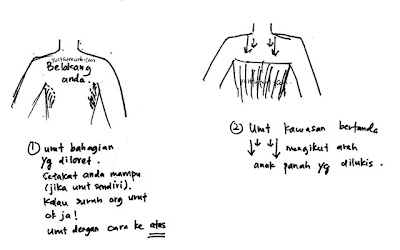 Belakang
anda.
① urut bahagian
yg diloret.
Setakat anda mampu
(jika urut sendiri).
Kalau suruh org urut
ok ja!
Urut dengan cara ke atas
② Urut kawasan bertanda
↓ ↓ ↓ mengikut arah
anak panah yg dilukis.